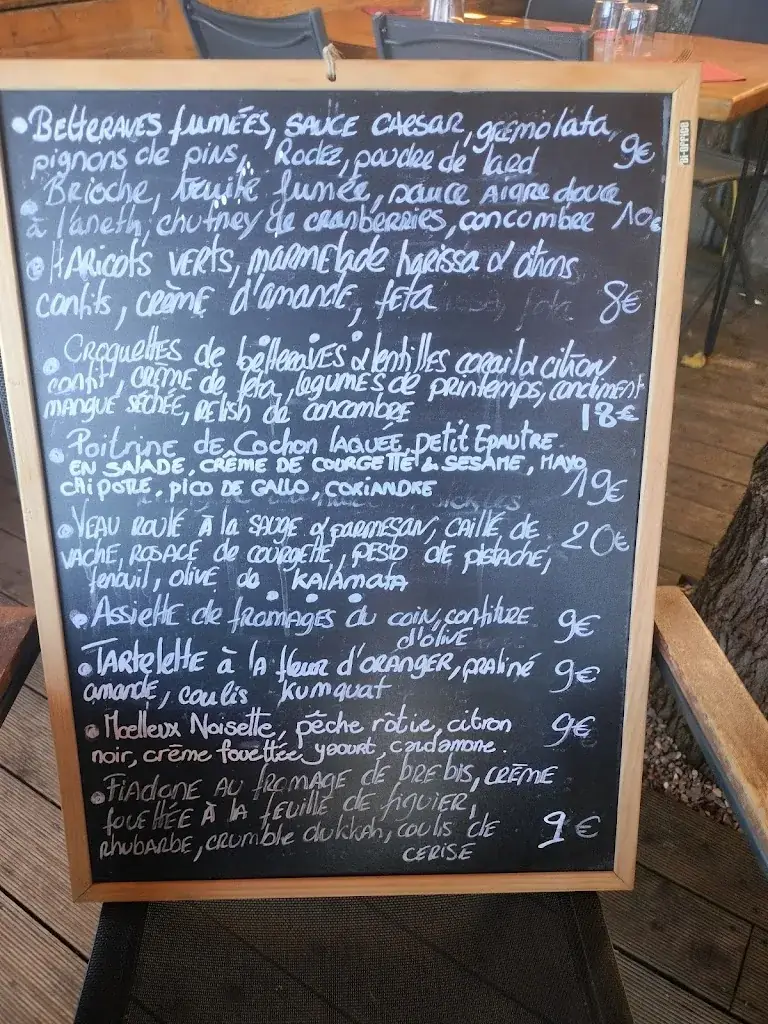 • Betteraves fumées, sauce caesar, gremolata,
pignons de pins, Rodez, poudre de lard 9€
• Brioche, truite fumée, sauce aigre douce
à l'aneth, chutney de cranberries, concombre 10€
• Haricots verts, marmelade harissa & citrons
confits, crème d'amande, feta 8€
• Croquettes de betteraves & lentilles corail & citron
confit, crème de feta, légumes de printemps, condiment
mangue séchée, relish de concombre 18€
• Poitrine de Cochon laquée, petit Epautre
en salade, crême de courgette & sesame, mayo
chipotle, pico de gallo, coriandre 19€
• Veau roulé à la sauge & parmesan, caillé de 20€
vache, rosace de courgette, pesto de pistache,
fenouil, olive de Kalamata
• Assiette de fromages du coin, confiture 9€
d'olive
• Tartelette à la fleur d'oranger, praliné 9€
amande, coulis kumquat
• Moelleux Noisette, pêche rôtie, citron 9€
noir, crème fouettée yaourt, cardamone.
• Fiadone au fromage de brebis, crème
fouettée à la feuille de figuier,
rhubarbe, crumble dukkah, coulis de 9€
cerise
BI-OFFICE